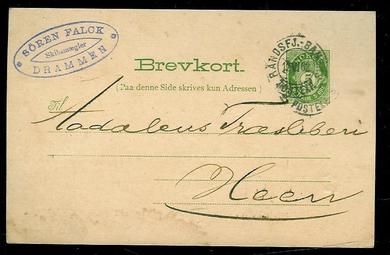 SÖREN FALCK
Skibsmægler
DRAMMEN
Brevkort.
(Paa denne Side skrives kun Adressen)
RANDSFJ.-BA
POSTEX
Til
Aadalens Træsliberi
Heen